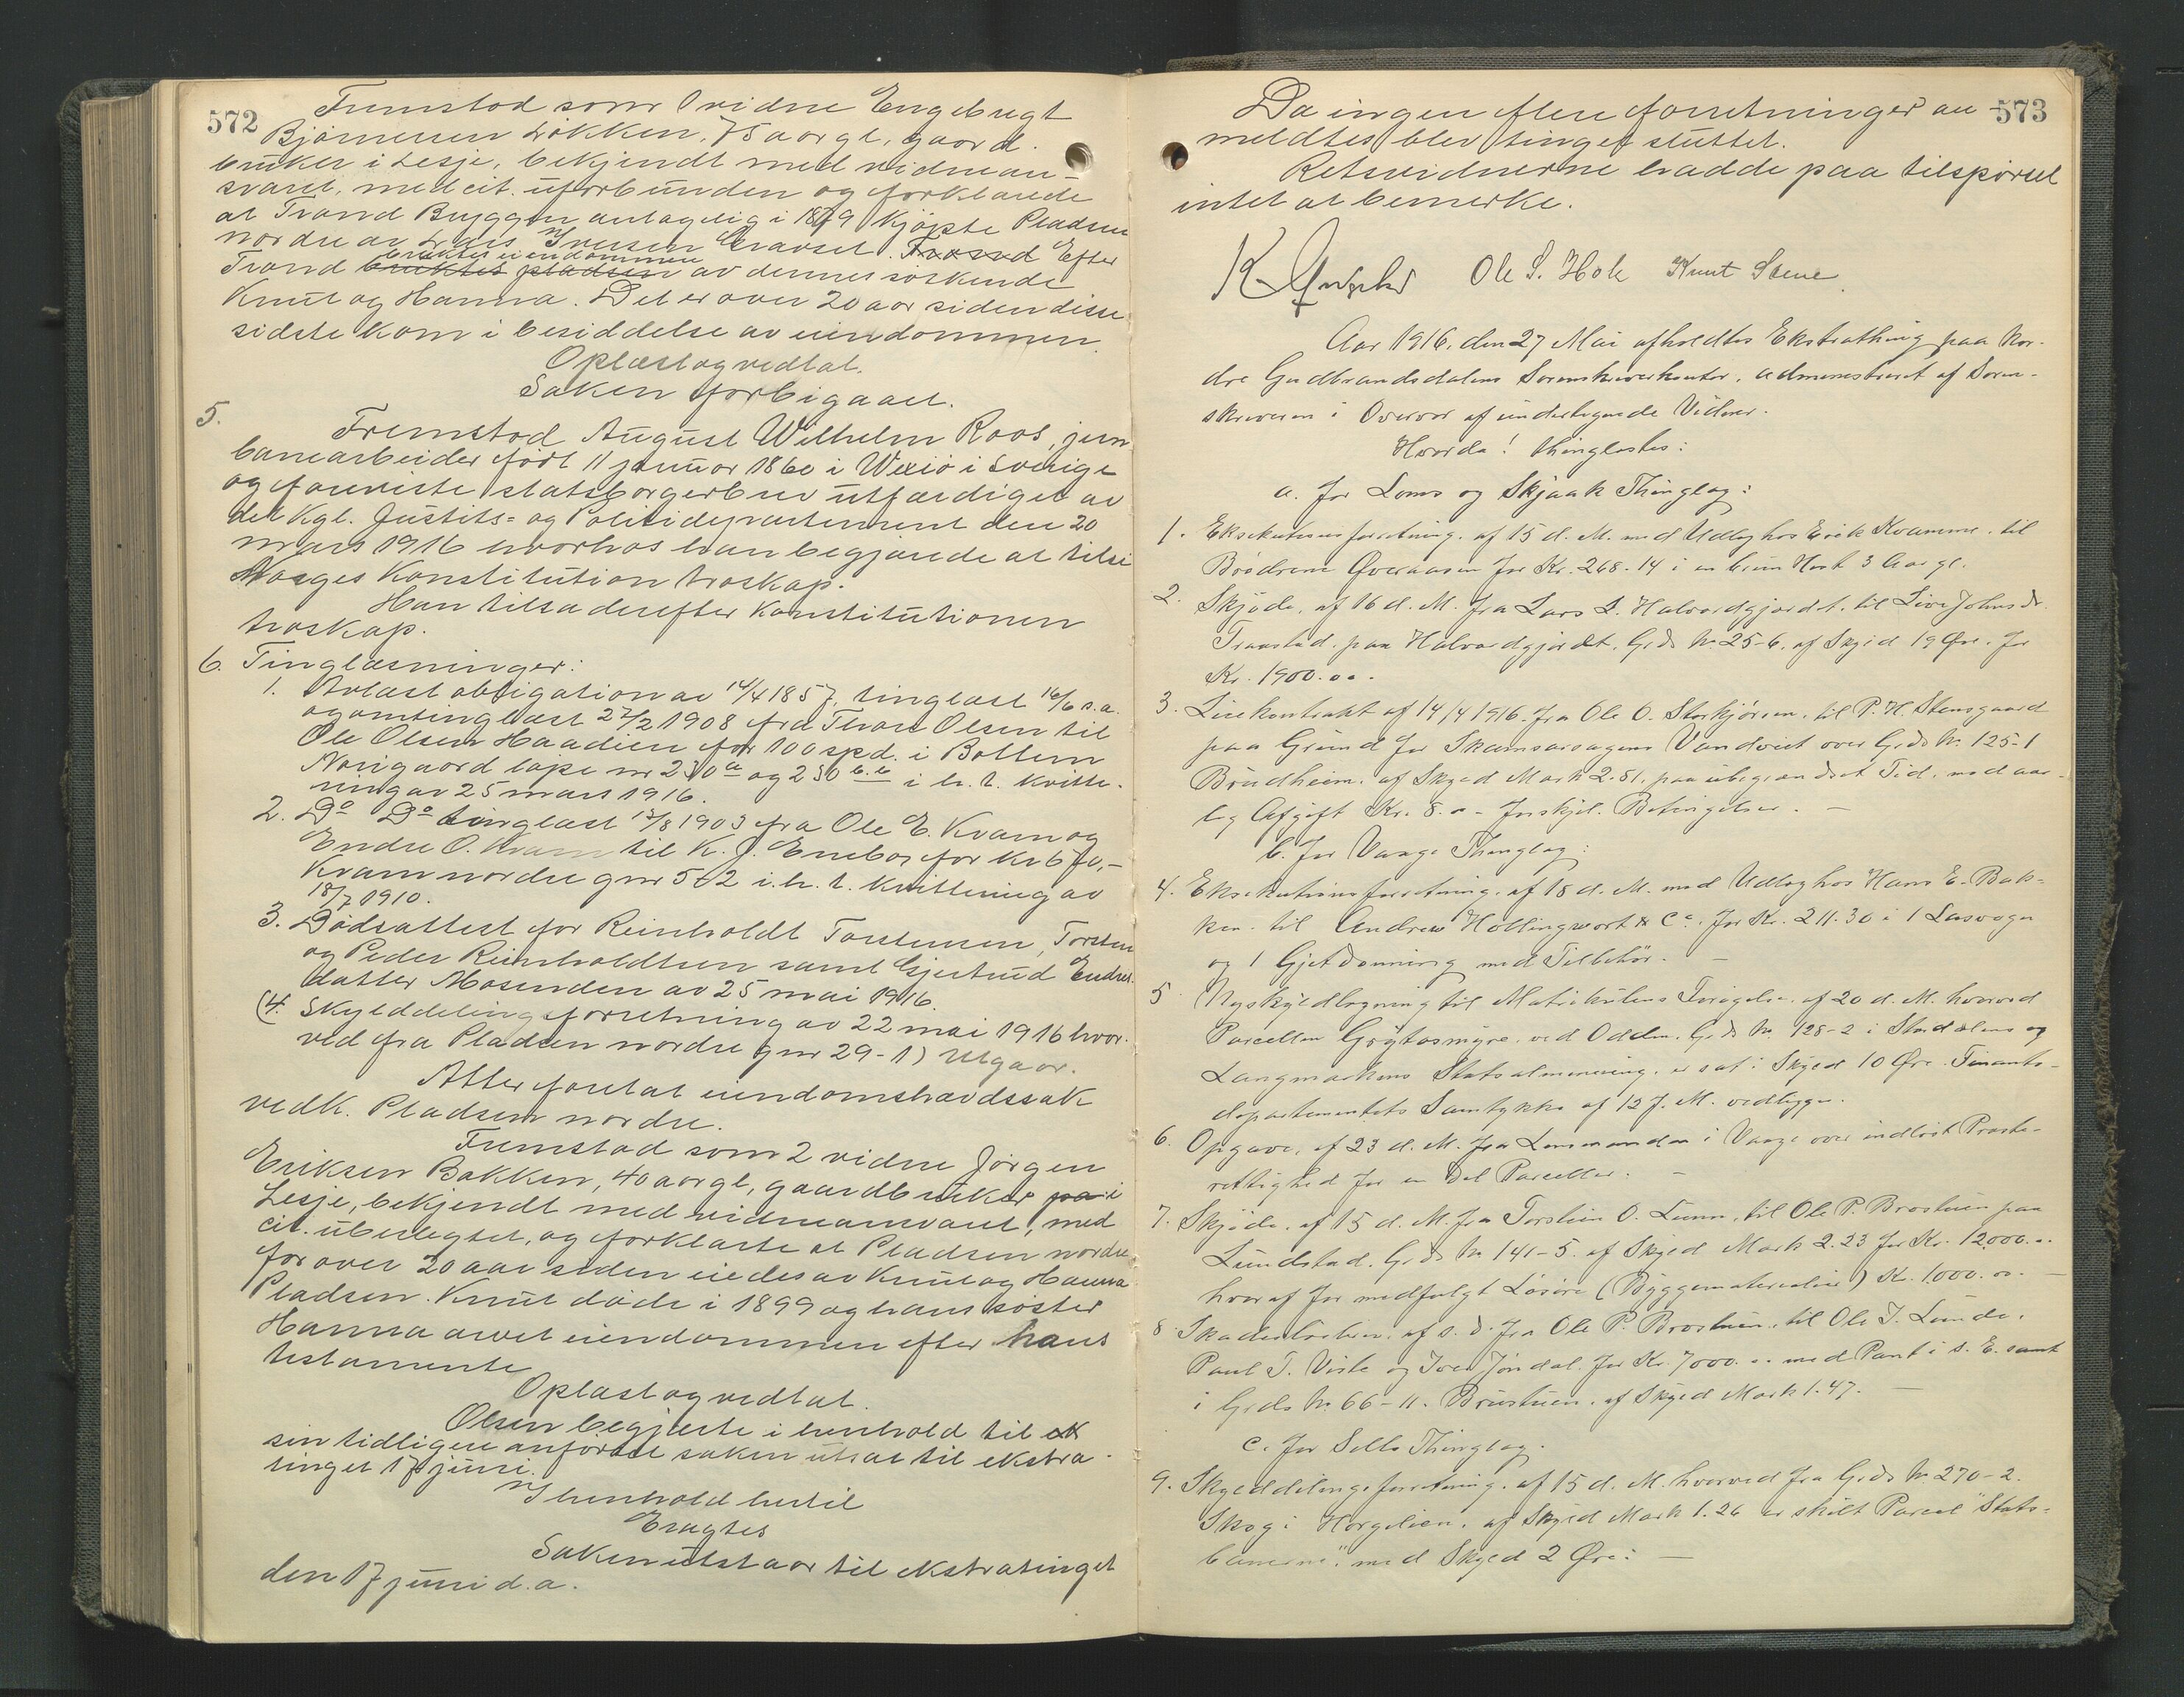 572
Fremstod som 1 vidne Engebrigt
Bjørnersen Løkken, 75 aar gl, gaard-
bruker i Lesje, bekjendt med vidnean-
svaret, med cit. uforbunden og forklarede
at Trond Bryggen antagelig i 1879 kjøpte Pladsen
nordre av Lars Iversen Gravset. Trosnd Efter
bruktes eiendommen
Trond bruktes pladsen av dennes søskende
Knut og Hanna. Det er over 20 aar siden disse
sidste kom i besiddelse av eiendommen.
Oplæst og vedtat.
Saken forbigaaet.
5.
Fremstod August Wilhelm Roos, jern-
banearbeider født 11 januar 1860 i Wexiø i Sverige
og foreviste statsborgerbrev utfærdiget av
det Kgl. Justits- og Politidepartement den 20
mars 1916 hvorhos han begjærede at tilsi
Norges Konstitution troskap.
Han tilsa derefter Konstitutionen
troskap.
6. Tinglæsninger:
1. Avlæst obligation av 14/4 1857, tinglæst 16/6 s.a.
og omtinglæst 27/2 1908 fra Thore Olsen til
Ole Olsen Haadien for 100 spd. i Bottem
Norigaard løpe nr 230 a og 230 b.b i h. t. kvitte-
ring av 25 mars 1916.
2. Do Do tinglæst 17/8 1903 fra Ole E. Kvam og
Endre O. Kvam til K. J. Enebo for kr 670,-
Kvam nordre gnr 5-2 i. h. t. kvittering av
18/7 1910.
3. Dødsattest for Reinholdt Torstensen, Torsten
og Peder Reinholdtsen samt Gjertrud Endres-
datter Mosenden av 25 mai 1916.
(4. Skylddelingsforretning av 22 mai 1916 hvor-
ved fra Pladsen nordre gnr 29-1) Utgaar.
Atter foretat eiendomshævdssak
vedk. Pladsen nordre.
Fremstod som 2 vidne Jørgen
Eriksen Bakken, 40 aar gl, gaardbruker paa i
Lesje, bekjendt med vidneansvaret, med
cit. uberygtet, og forklarte at Pladsen nordre
for over 20 aar siden eiedes av Knut og Hanna
Pladsen. Knut døde i 1899 og hans søster
Hanna arvet eiendommen efter hans
testamente
Oplæst og vedtat.
Olsen begjærte i henhold til
sin tidligere anførsel saken utsat til ekstra-
tinget 17 juni.
I henhold hertil
Eragtes
Saken utstaar til ekstratinget
den 17 juni d.a.
573
Da ingen flere forretninger an-
meldtes blev tinget sluttet.
Retsvidnerne hadde paa tilspørsel
intet at bemerke.
Ole S. Hole Knut Steine
Aar 1916, den 27 Mai afholdtes Ekstrathing paa Nor-
dre Gudbrandsdalens Sorenskriverkontor, administreret af Soren-
skriveren i Overvær af undertegnede Vidner.
Hvorda! thinglæstes:
a. for Loms og Skjaak Thinglag:
1. Eksekutionsforretning af 15 d. M. med Udlæg hos Erik Kvamme til
Brødrene Øveraasen for Kr. 268.14 i en brun Hest 3 Aar gl.
2. Skjøde, af 16 d. M. fra Lars L. Halvardgjordet, til Live Johnsdr.
Tronstad, paa Halvardgjordet, Grds No. 25-6, af Skyld 19 Øre. for
Kr. 1900.00.
3. Leiekontrakt af 14/4 1916. fra Ole O. Storkjørren, til P. H. Stensgaard
paa Grund for Skamsarsagens Vandret over Grds No. 125-1
Brudheim, af Skyld Mark 2.51, paa ubegrændset Tid, mod aar-
lig Afgift Kr. 8.00 Forskjel. Betingelser. —
b. for Vaage Thinglag:
4. Eksekutionsforretning af 18 d. M. med Udlæg hos Hans E. Bak-
ken, til Andrew Hollingwort & Co. for Kr. 211.30 i 1 Læsvogn
og 1 Gjetdonning med Tilbehør. —
5. Nyskyldlægning til Matrikulens Forøgelse af 20 d. M. hvorved
Parcellen Grytosmyre ved Odden, Grds No. 128-2 i Skedalens og
Langmorkens Statsalmenning er sat i Skyld 10 Øre. Finants-
departementets Samtykke af 12 f. M. vedlygger.
6. Opgave, af 23 d. M. fra Lensmanden i Vaage over indløst Præste-
rettighed for en Del Parceller. —
7. Skjøde, af 15 d. M. fra Torstein O. Lunn, til Ole P. Brostuen paa
Lundstad, Grds No 141-5. af Skyld Mark 2.23 for Kr. 12000.00
hvoraf for medfulgt Løsøre (Byggematerialier) Kr. 1000.00. —
8. Skadesløsbrev, af s. D. fra Ole P. Brostuen, til Ole T. Lunde,
Paul T. Viste og Iver Jøndal. for Kr. 7000.00 med Pant i s. E. samt
i Grds No. 66-11. Brustuen, af Skyld Mark 1.47. —
c. for Sells Thinglag.
9. Skylddelingsforretning, af 15 d. M. hvorved fra Grds No. 270-2.
Skog i Horgelien, af Skyld Mark 1.26 er skilt Parcel "Stats-
banerne", med Skyld 2 Øre: —